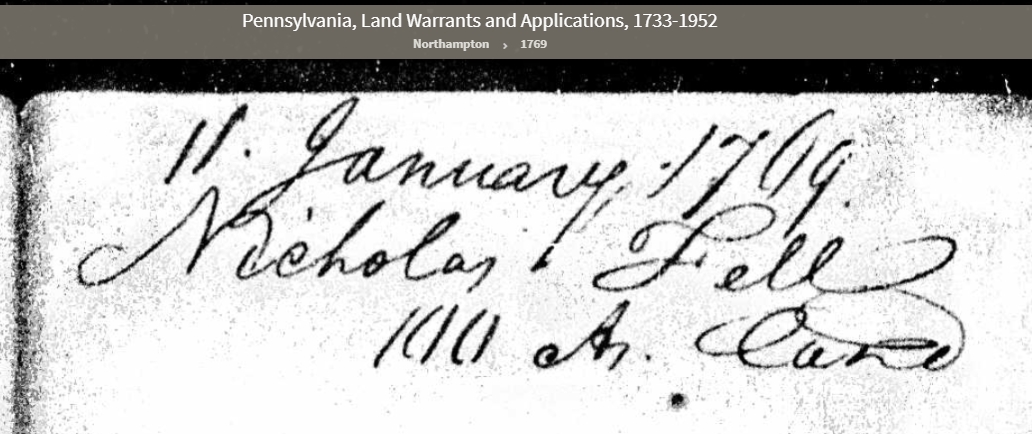 Pennsylvania, Land Warrants and Applications, 1733-1952
Northampton › 1769
11. January, 1769.
Nicholas Fell
100 Ar. Land